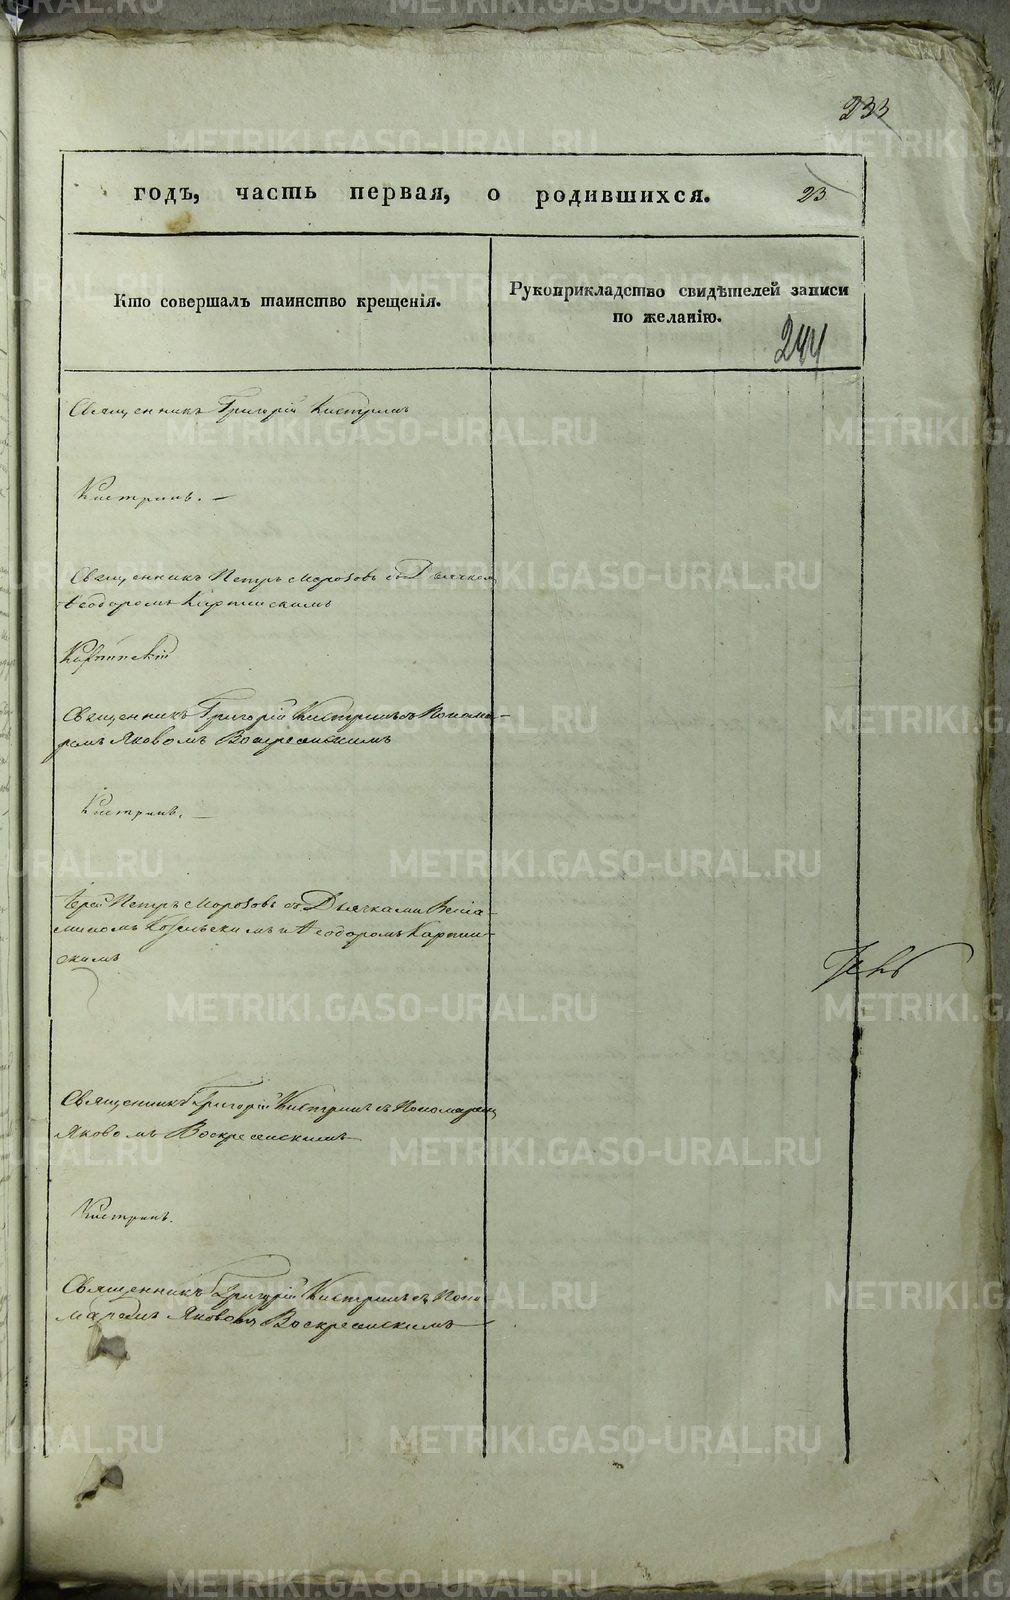 233
годъ, часть первая, о родившихся. 23
Кто совершалъ таинство крещенія.
Рукоприкладство свидѣтелей записи
по желанію.
244
Священникъ Григорій Кистринъ
Кистринъ. —
Священникъ Петръ Морозовъ съ Дьячкомъ
Ѳеодоромъ Карпинскимъ
Карпинскій
Священникъ Григорій Кистринъ съ Понома-
ремъ Яковомъ Воскресенскимъ
Кистринъ. —
Іерей Петръ Морозовъ съ Дьячками Веніа-
миномъ Козельскимъ и Ѳеодоромъ Карпин-
скимъ
Священникъ Григорій Кистринъ съ Пономаремъ
Яковомъ Воскресенскимъ
Кистринъ.
Священникъ Григорій Кистринъ съ Поно-
маремъ Яковомъ Воскресенскимъ
METRIKI.GASO-URAL.RU